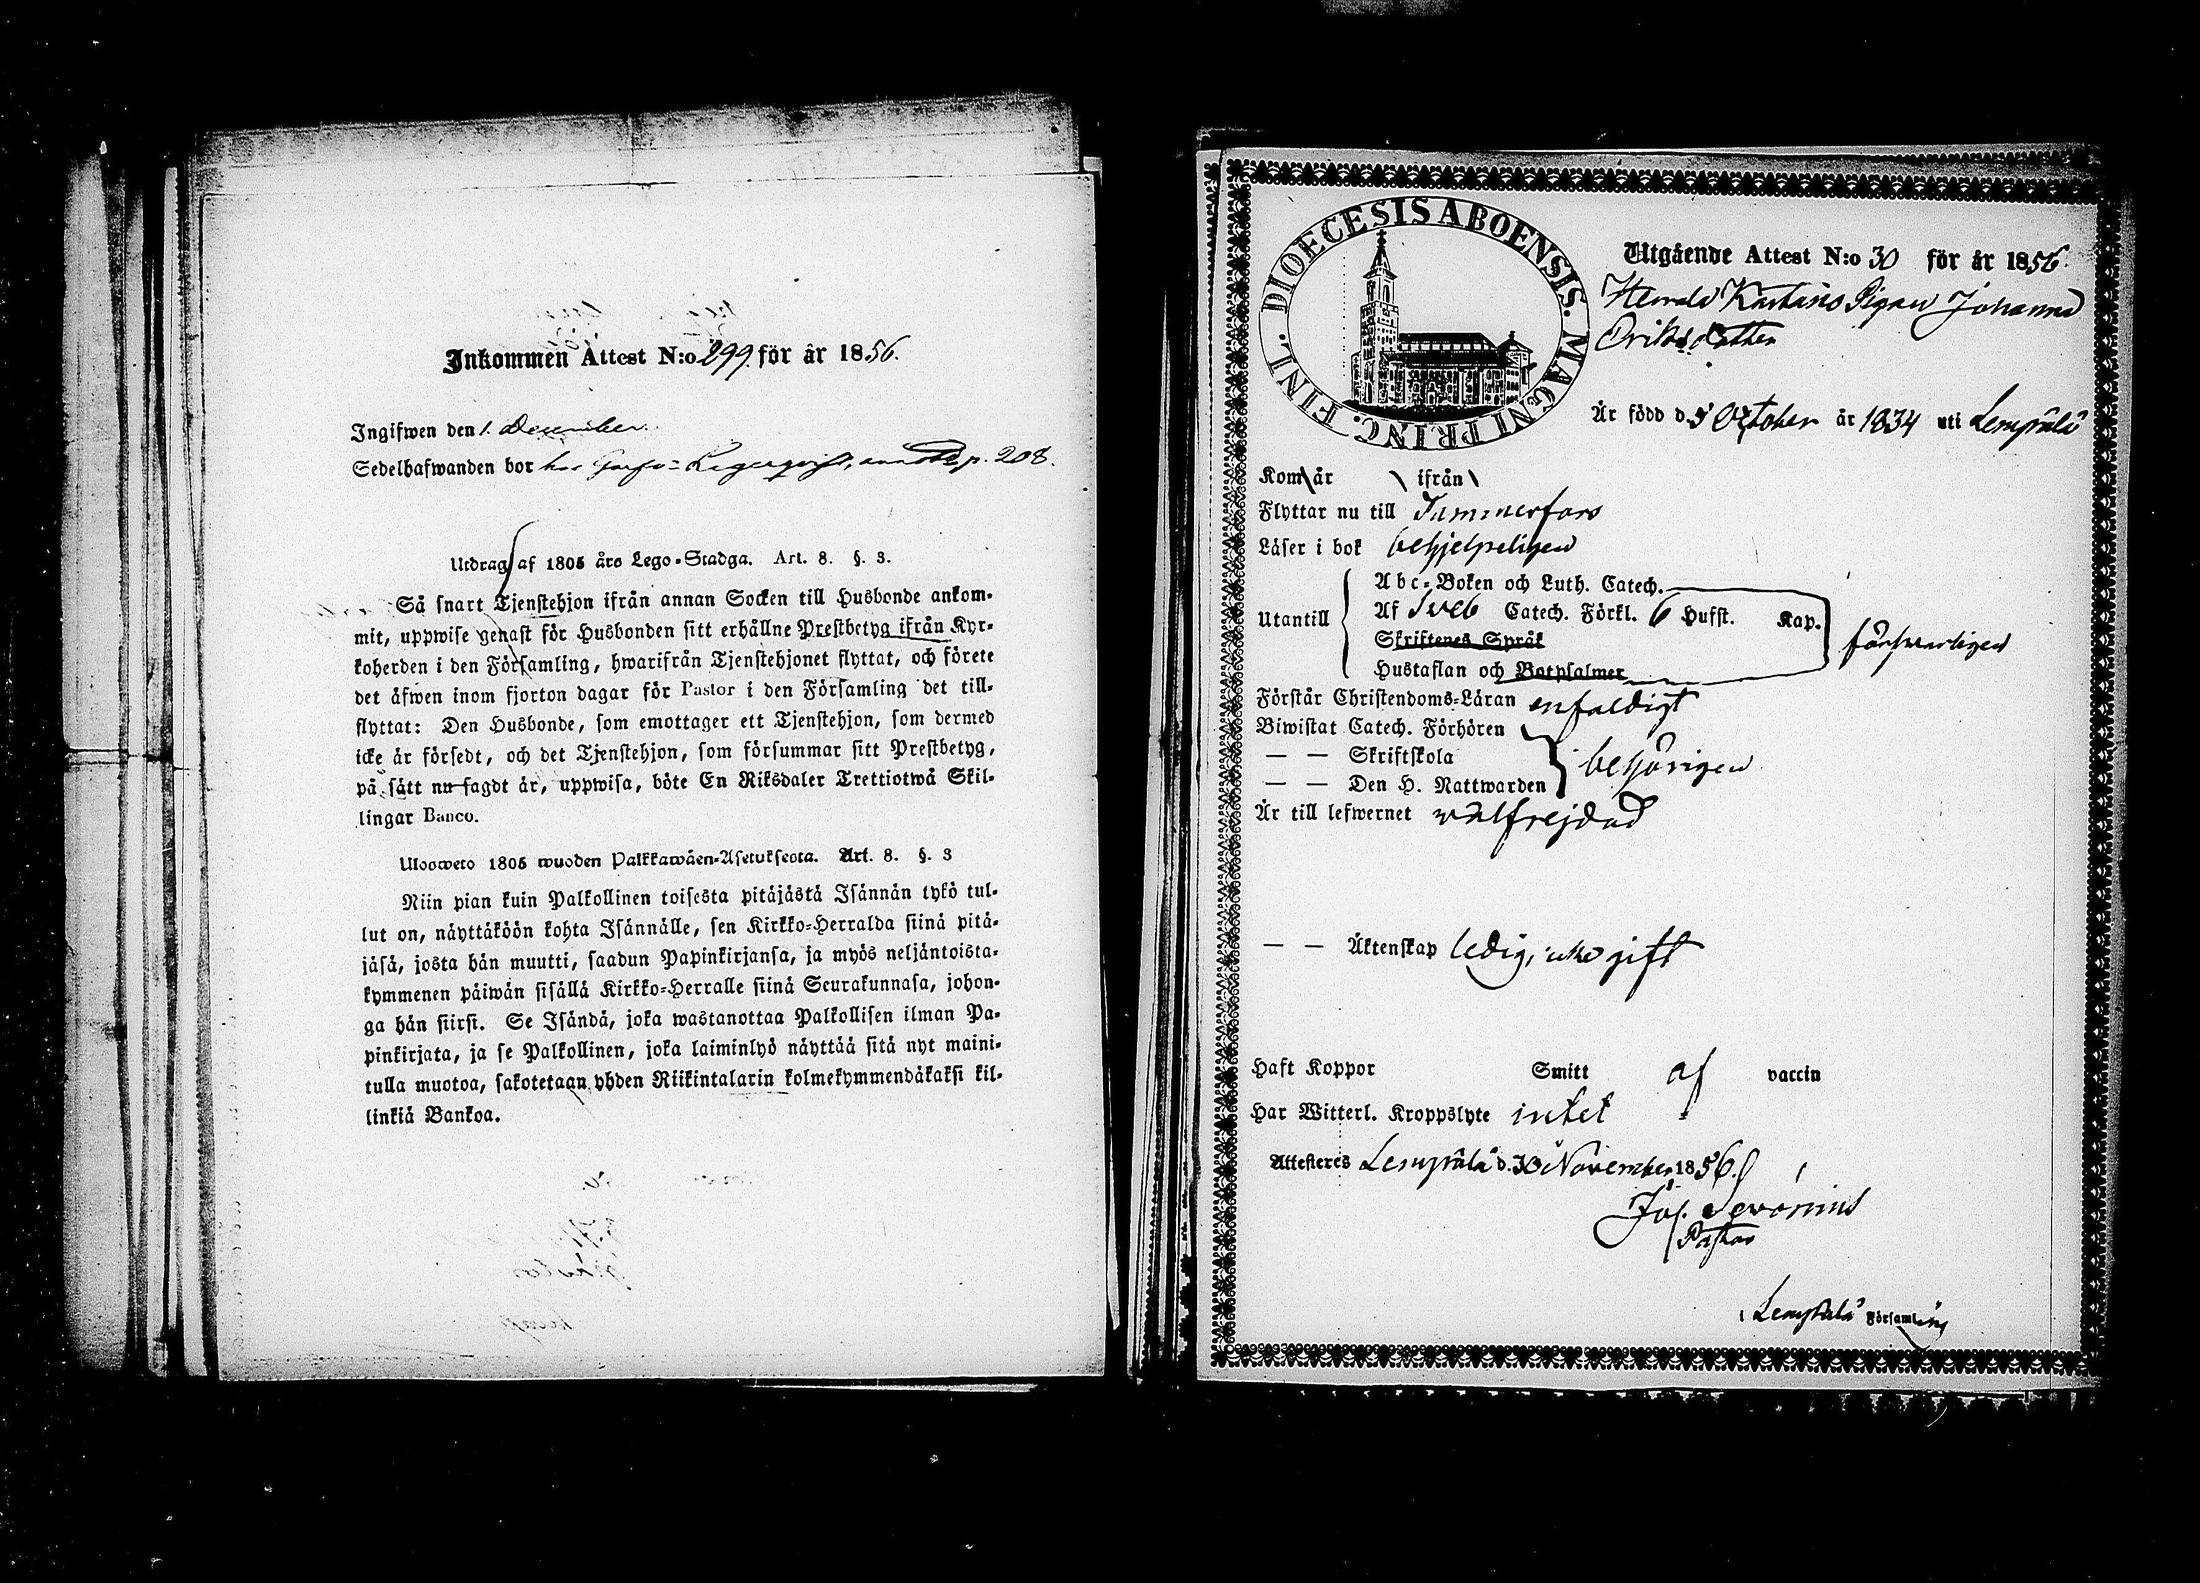 Inkommen Attest N:o 299. för år 1856.
Ingifwen den 1. December.
Sedelhafwanden bor hos p. 208.
Utdrag af 1805 års Lego-Stadga. Art. 8. §. 3.
Så snart Tjenstehjon ifrån annan Socken till Husbonde ankom-
mit, uppwise genast för Husbonden sitt erhållne Prestbetyg ifrån Kyr-
koherden i den Församling, hwarifrån Tjenstehjonet flyttat, och förete
det äfwen inom fjorton dagar för Pastor i den Församling det till-
flyttat: Den Husbonde, som emottager ett Tjenstehjon, som dermed
icke är försedt, och det Tjenstehjon, som försummar sitt Prestbetyg,
på sätt nu sagdt är, uppwisa, böte En Riksdaler Trettiotwå Skil-
lingar Banco.
Ulosweto 1805 wuoden Palkkawäen-Asetuksesta. Art. 8. §. 3
Niin pian kuin Palkollinen toisesta pitäjästä Isännän tykö tul-
lut on, näyttäköön kohta Isännälle, sen Kirkko-Herralda siinä pitä-
jäsä, josta hän muutti, saadun Papinkirjansa, ja myös neljäntoista-
kymmenen päiwän sisällä Kirkko-Herralle siinä Seurakunnasa, johon-
ga hän siirsi. Se Isändä, joka wastanottaa Palkollisen ilman Pa-
pinkirjata, ja se Palkollinen, joka laiminlyö näyttää sitä nyt maini-
tulla muotoa, sakotetaan yhden Riikintalarin kolmekymmendäkaksi kil-
linkiä Bankoa.
DIOECESIS ABOENSIS. MAGNI PRINC. FINL.
Utgående Attest N:o 30 för år 1856.
Pigan Johanna
Eriksdotter
Är född d. 5 October år 1834 uti Lempälä
Kom år ifrån
Flyttar nu till Tammerfors
Läser i bok behjelpeligen
Abc-Boken och Luth. Catech.
Utantill Af Sveb Catech. Förkl. 6 Hufst. Kap. försvarligen
Skriftenes Språk
Hustaflan och Botpsalmer
Förstår Christendoms-Läran enfaldigt
Biwistat Catech. Förhören
— — Skriftskola behörigen
— — Den H. Nattwarden
Är till lefwernet välfrejdad
— — Äktenskap ledig, icke gift
Haft Koppor Smitt af vaccin
Har Witterl. Kroppslyte intet
Attesteres Lempälä d. 30 November 1856.
Jos. Servonius
Pastor
Lempälä Församling